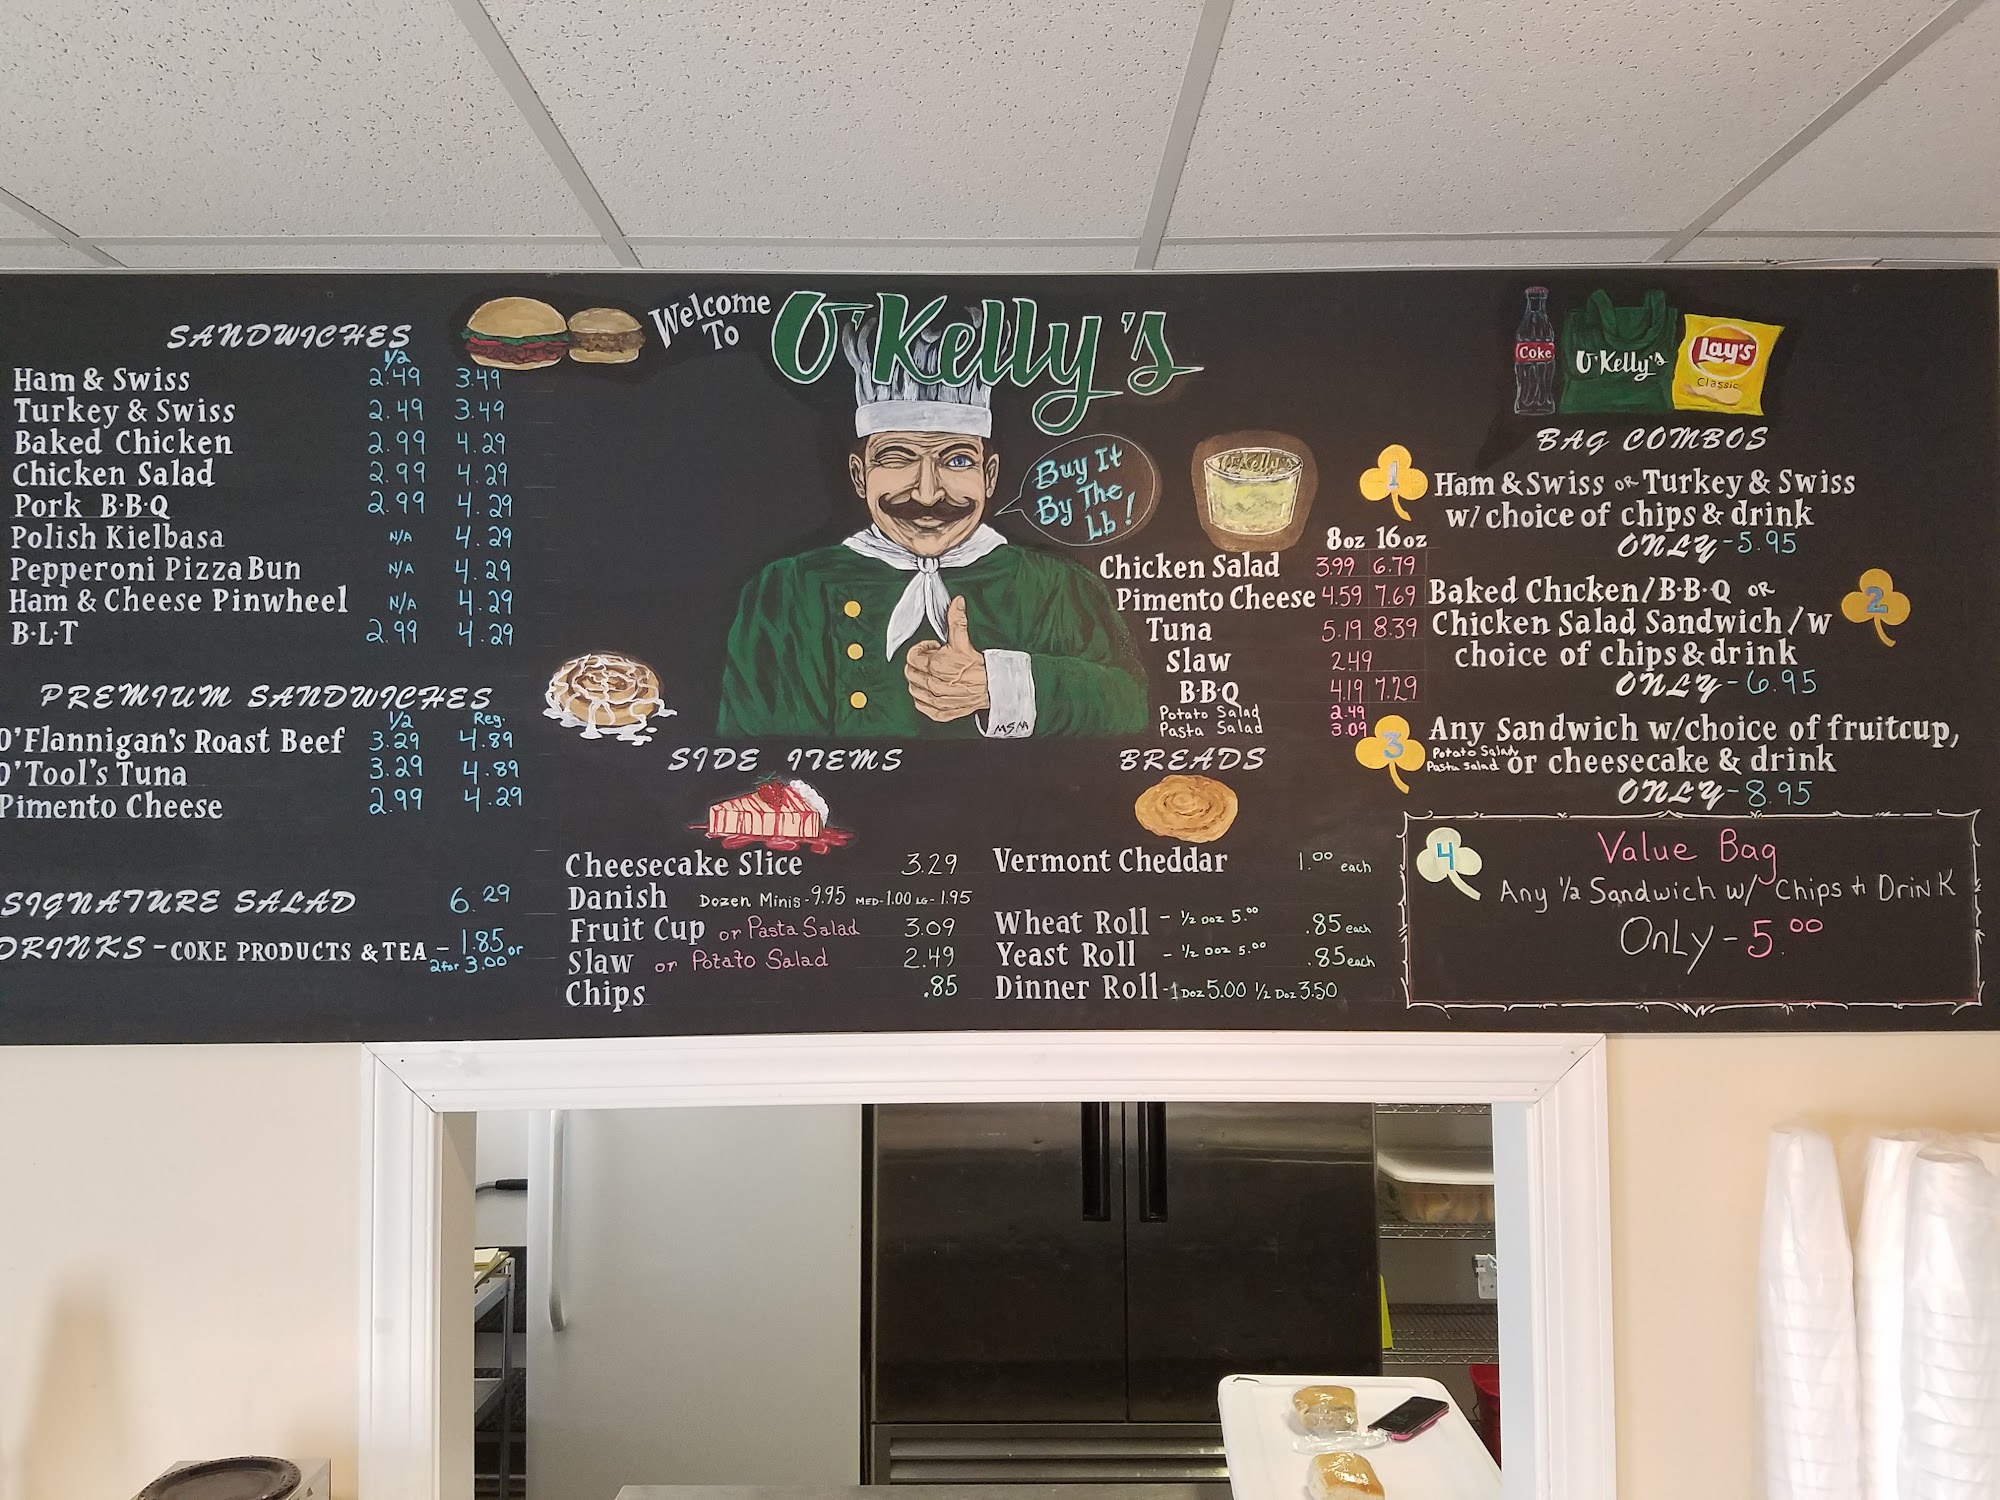 SANDWICHES
1/2
Ham & Swiss 2.49 3.49
Turkey & Swiss 2.49 3.49
Baked Chicken 2.99 4.29
Chicken Salad 2.99 4.29
Pork B·B·Q 2.99 4.29
Polish Kielbasa N/A 4.29
Pepperoni Pizza Bun N/A 4.29
Ham & Cheese Pinwheel N/A 4.29
B·L·T 2.99 4.29
PREMIUM SANDWICHES
1/2 Reg.
O'Flannigan's Roast Beef 3.29 4.89
O'Tool's Tuna 3.29 4.89
Pimento Cheese 2.99 4.29
SIGNATURE SALAD 6.29
DRINKS - COKE PRODUCTS & TEA - 1.85 or
2 for 3.00
Welcome
To
O'Kelly's
Buy It
By The
Lb!
MSM
O'Kelly's
8oz 16oz
Chicken Salad 3.99 6.79
Pimento Cheese 4.59 7.69
Tuna 5.19 8.39
Slaw 2.49
B·B·Q 4.19 7.29
Potato Salad 2.49
Pasta Salad 3.09
SIDE ITEMS
Cheesecake Slice 3.29
Danish Dozen Minis - 9.95 MED - 1.00 LG - 1.95
Fruit Cup or Pasta Salad 3.09
Slaw or Potato Salad 2.49
Chips .85
BREADS
Vermont Cheddar 1.00 each
Wheat Roll - 1/2 Doz 5.00 .85 each
Yeast Roll - 1/2 Doz 5.00 .85 each
Dinner Roll - 1 Doz 5.00 1/2 Doz 3.50
Coke
O'Kelly's
Lay's
Classic
BAG COMBOS
1
Ham & Swiss or Turkey & Swiss
w/ choice of chips & drink
ONLY - 5.95
2
Baked Chicken/B·B·Q or
Chicken Salad Sandwich/w
choice of chips & drink
ONLY - 6.95
3
Any Sandwich w/choice of fruitcup,
Potato Salad
Pasta Salad or cheesecake & drink
ONLY - 8.95
4
Value Bag
Any 1/2 Sandwich w/ Chips & Drink
Only - 5.00